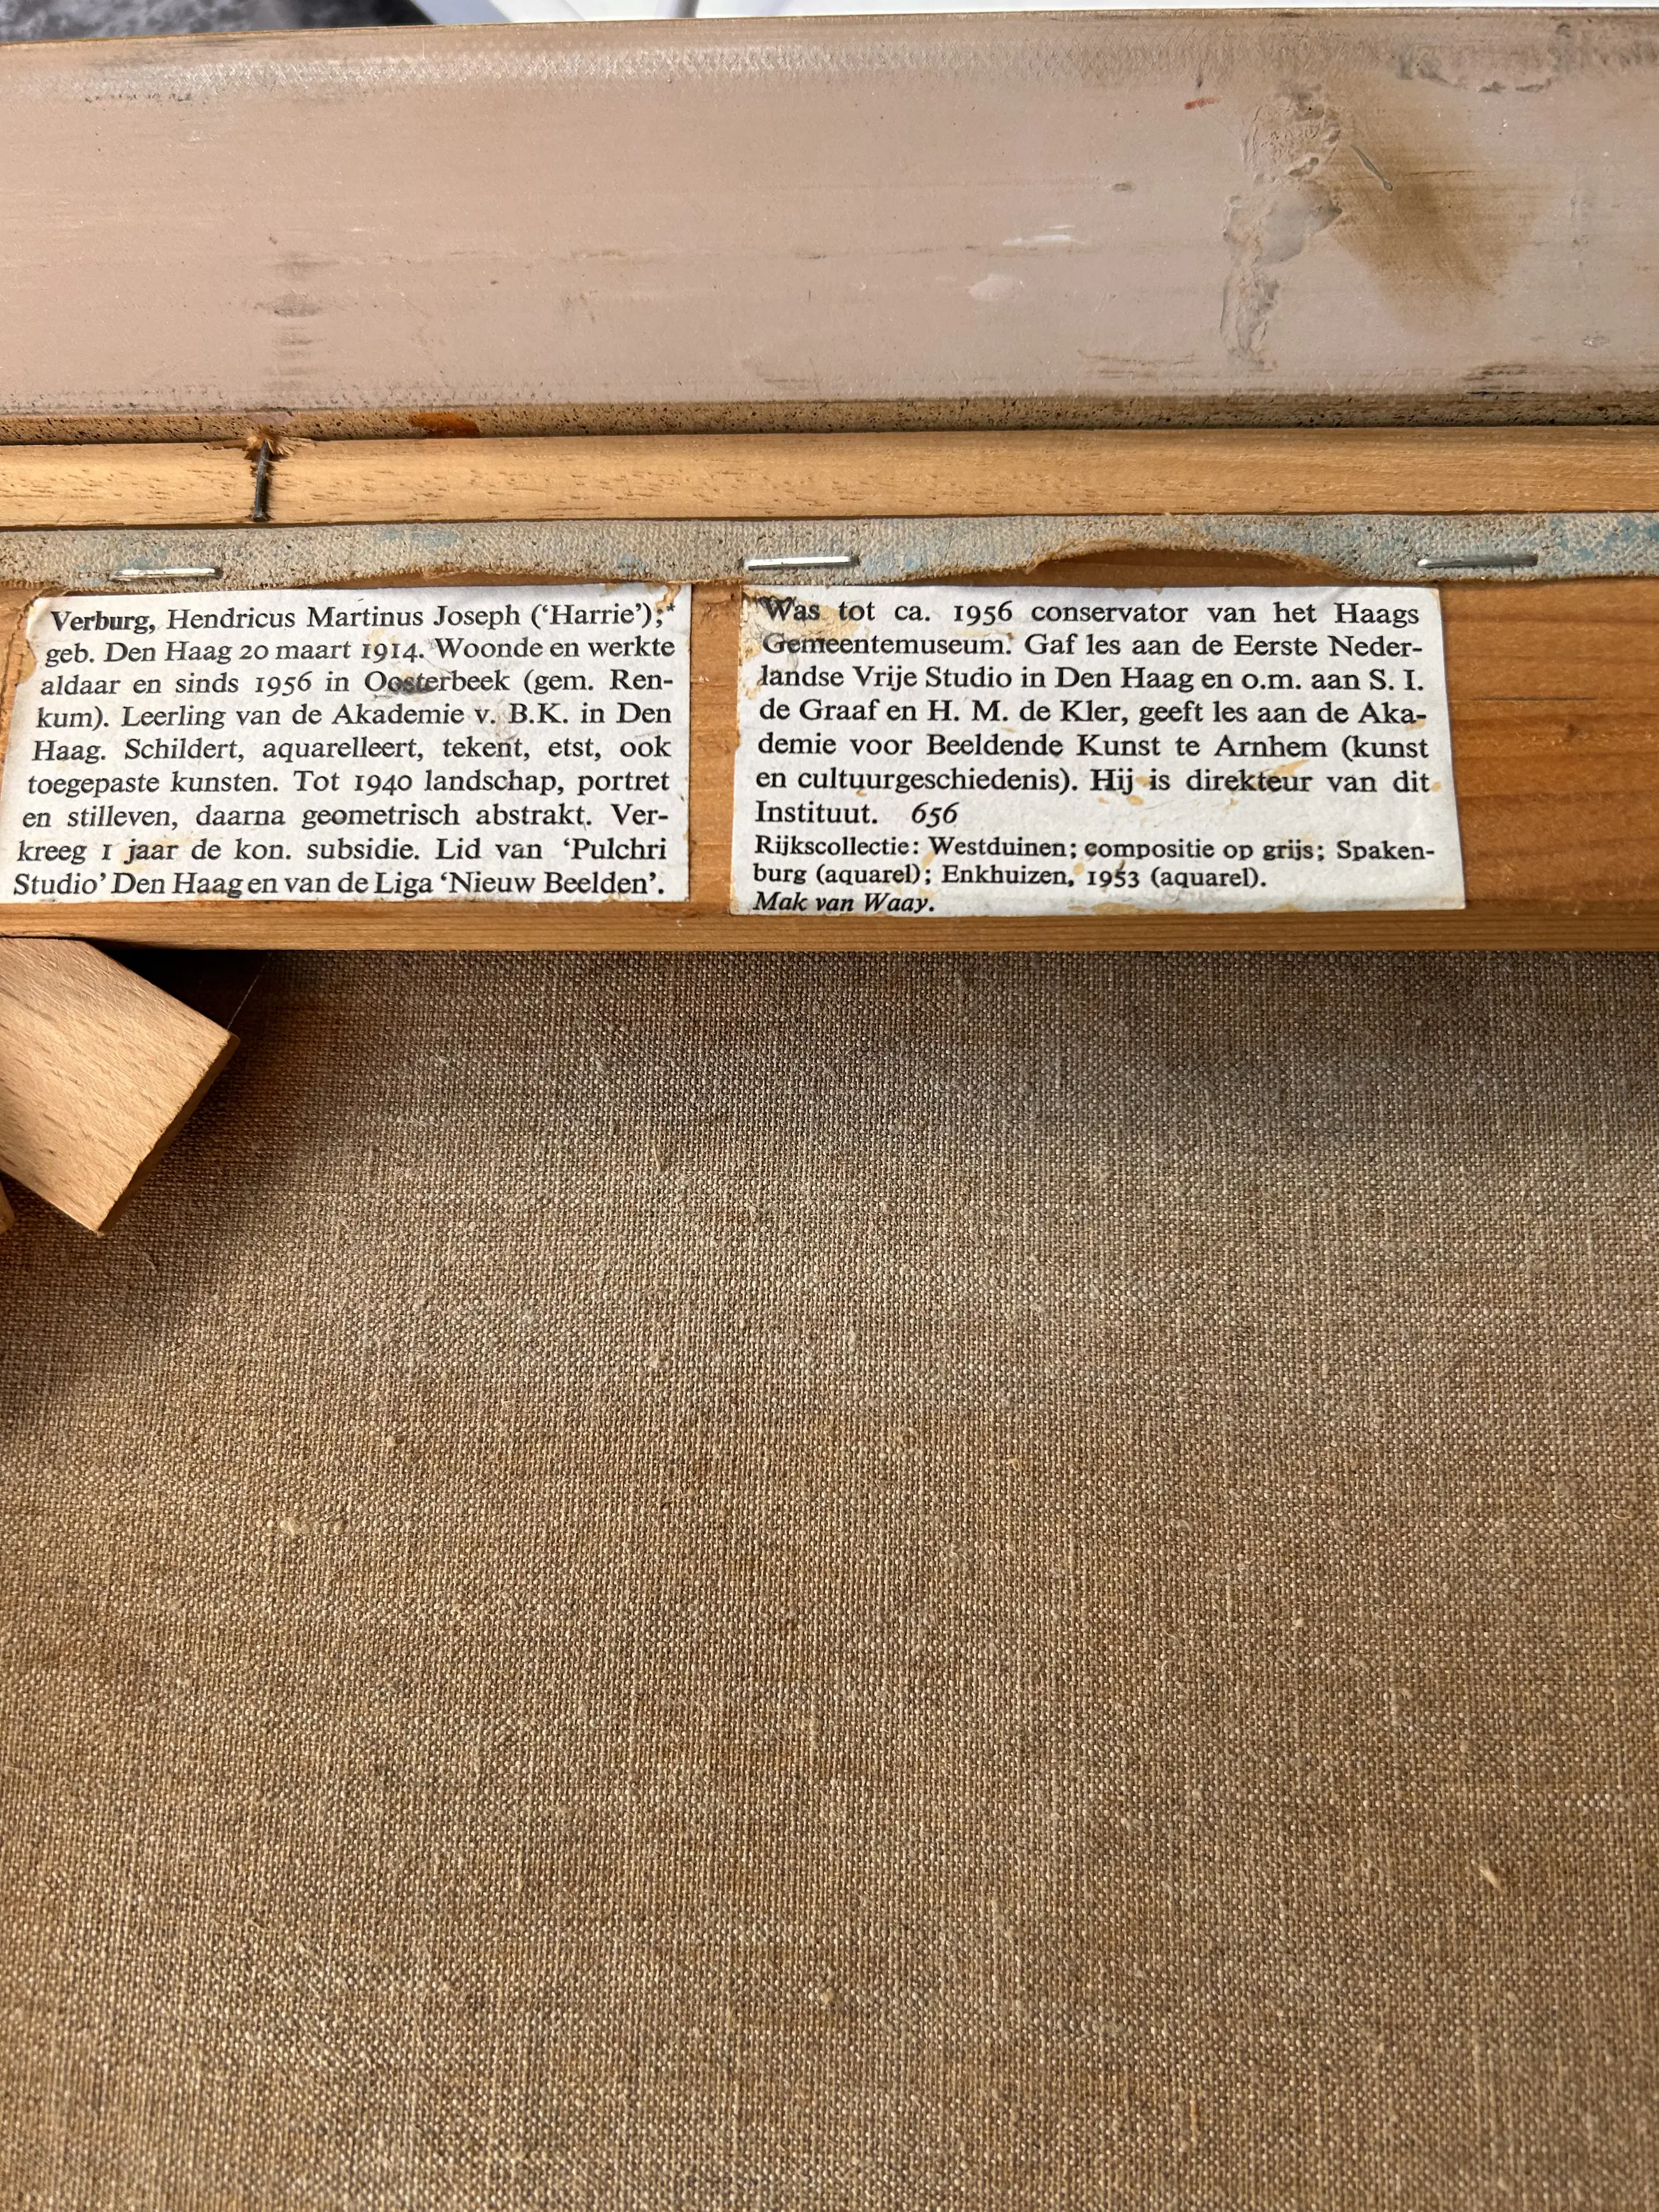 Verburg, Hendricus Martinus Joseph (‘Harrie’);*
geb. Den Haag 20 maart 1914. Woonde en werkte
aldaar en sinds 1956 in Oosterbeek (gem. Ren-
kum). Leerling van de Akademie v. B.K. in Den
Haag. Schildert, aquarelleert, tekent, etst, ook
toegepaste kunsten. Tot 1940 landschap, portret
en stilleven, daarna geometrisch abstrakt. Ver-
kreeg 1 jaar de kon. subsidie. Lid van ‘Pulchri
Studio’ Den Haag en van de Liga ‘Nieuw Beelden’.
Was tot ca. 1956 conservator van het Haags
Gemeentemuseum. Gaf les aan de Eerste Neder-
landse Vrije Studio in Den Haag en o.m. aan S. I.
de Graaf en H. M. de Kler, geeft les aan de Aka-
demie voor Beeldende Kunst te Arnhem (kunst
en cultuurgeschiedenis). Hij is direkteur van dit
Instituut. 656
Rijkscollectie: Westduinen; compositie op grijs; Spaken-
burg (aquarel); Enkhuizen, 1953 (aquarel).
Mak van Waay.